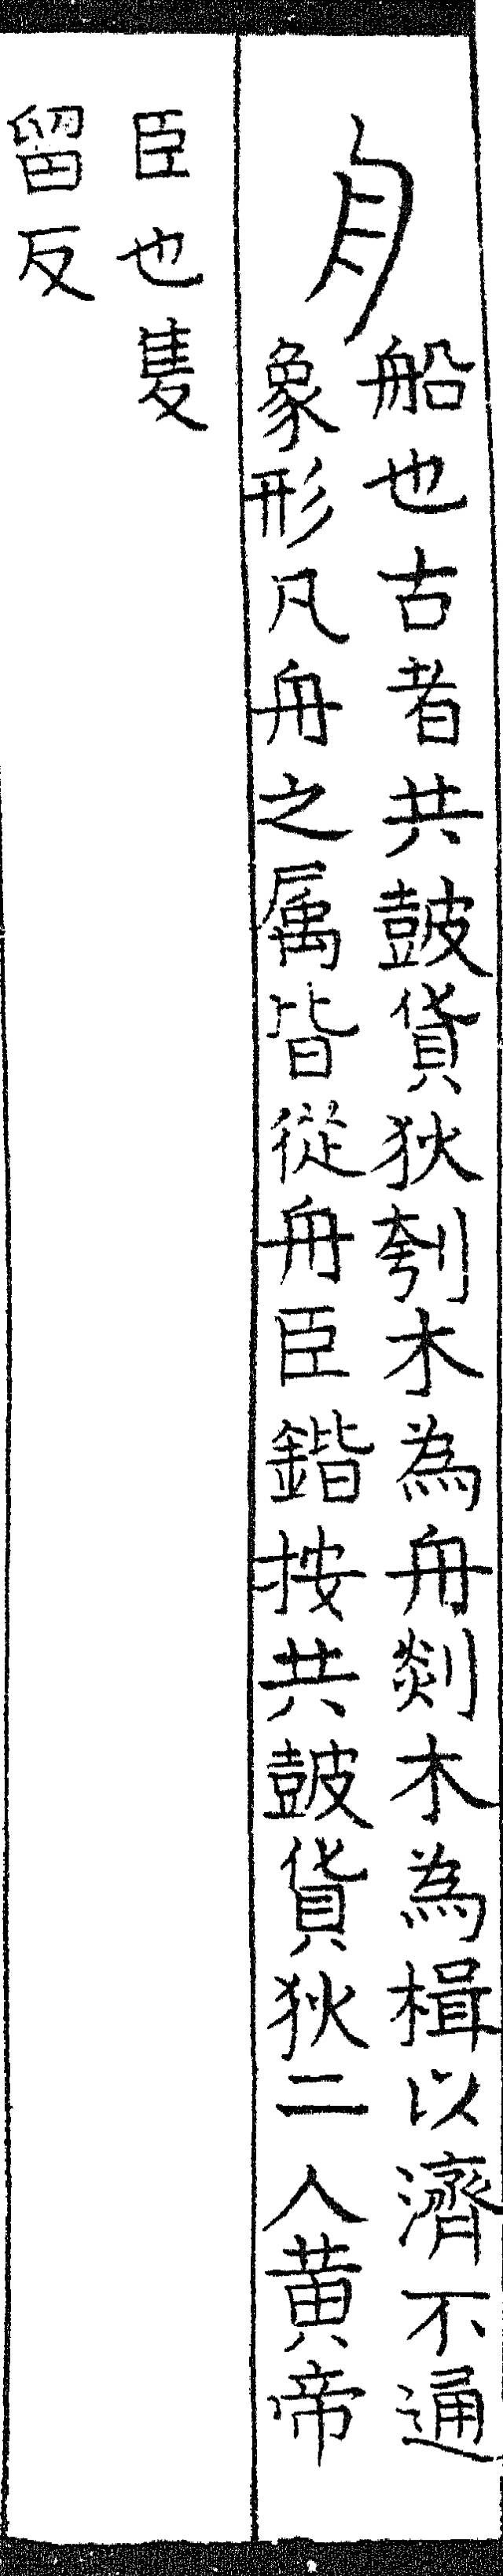 舟
船也古者共鼓貨狄刳木為舟剡木為楫以濟不通
象形凡舟之属皆從舟臣鍇按共鼓貨狄二人黄帝
臣也隻
留反